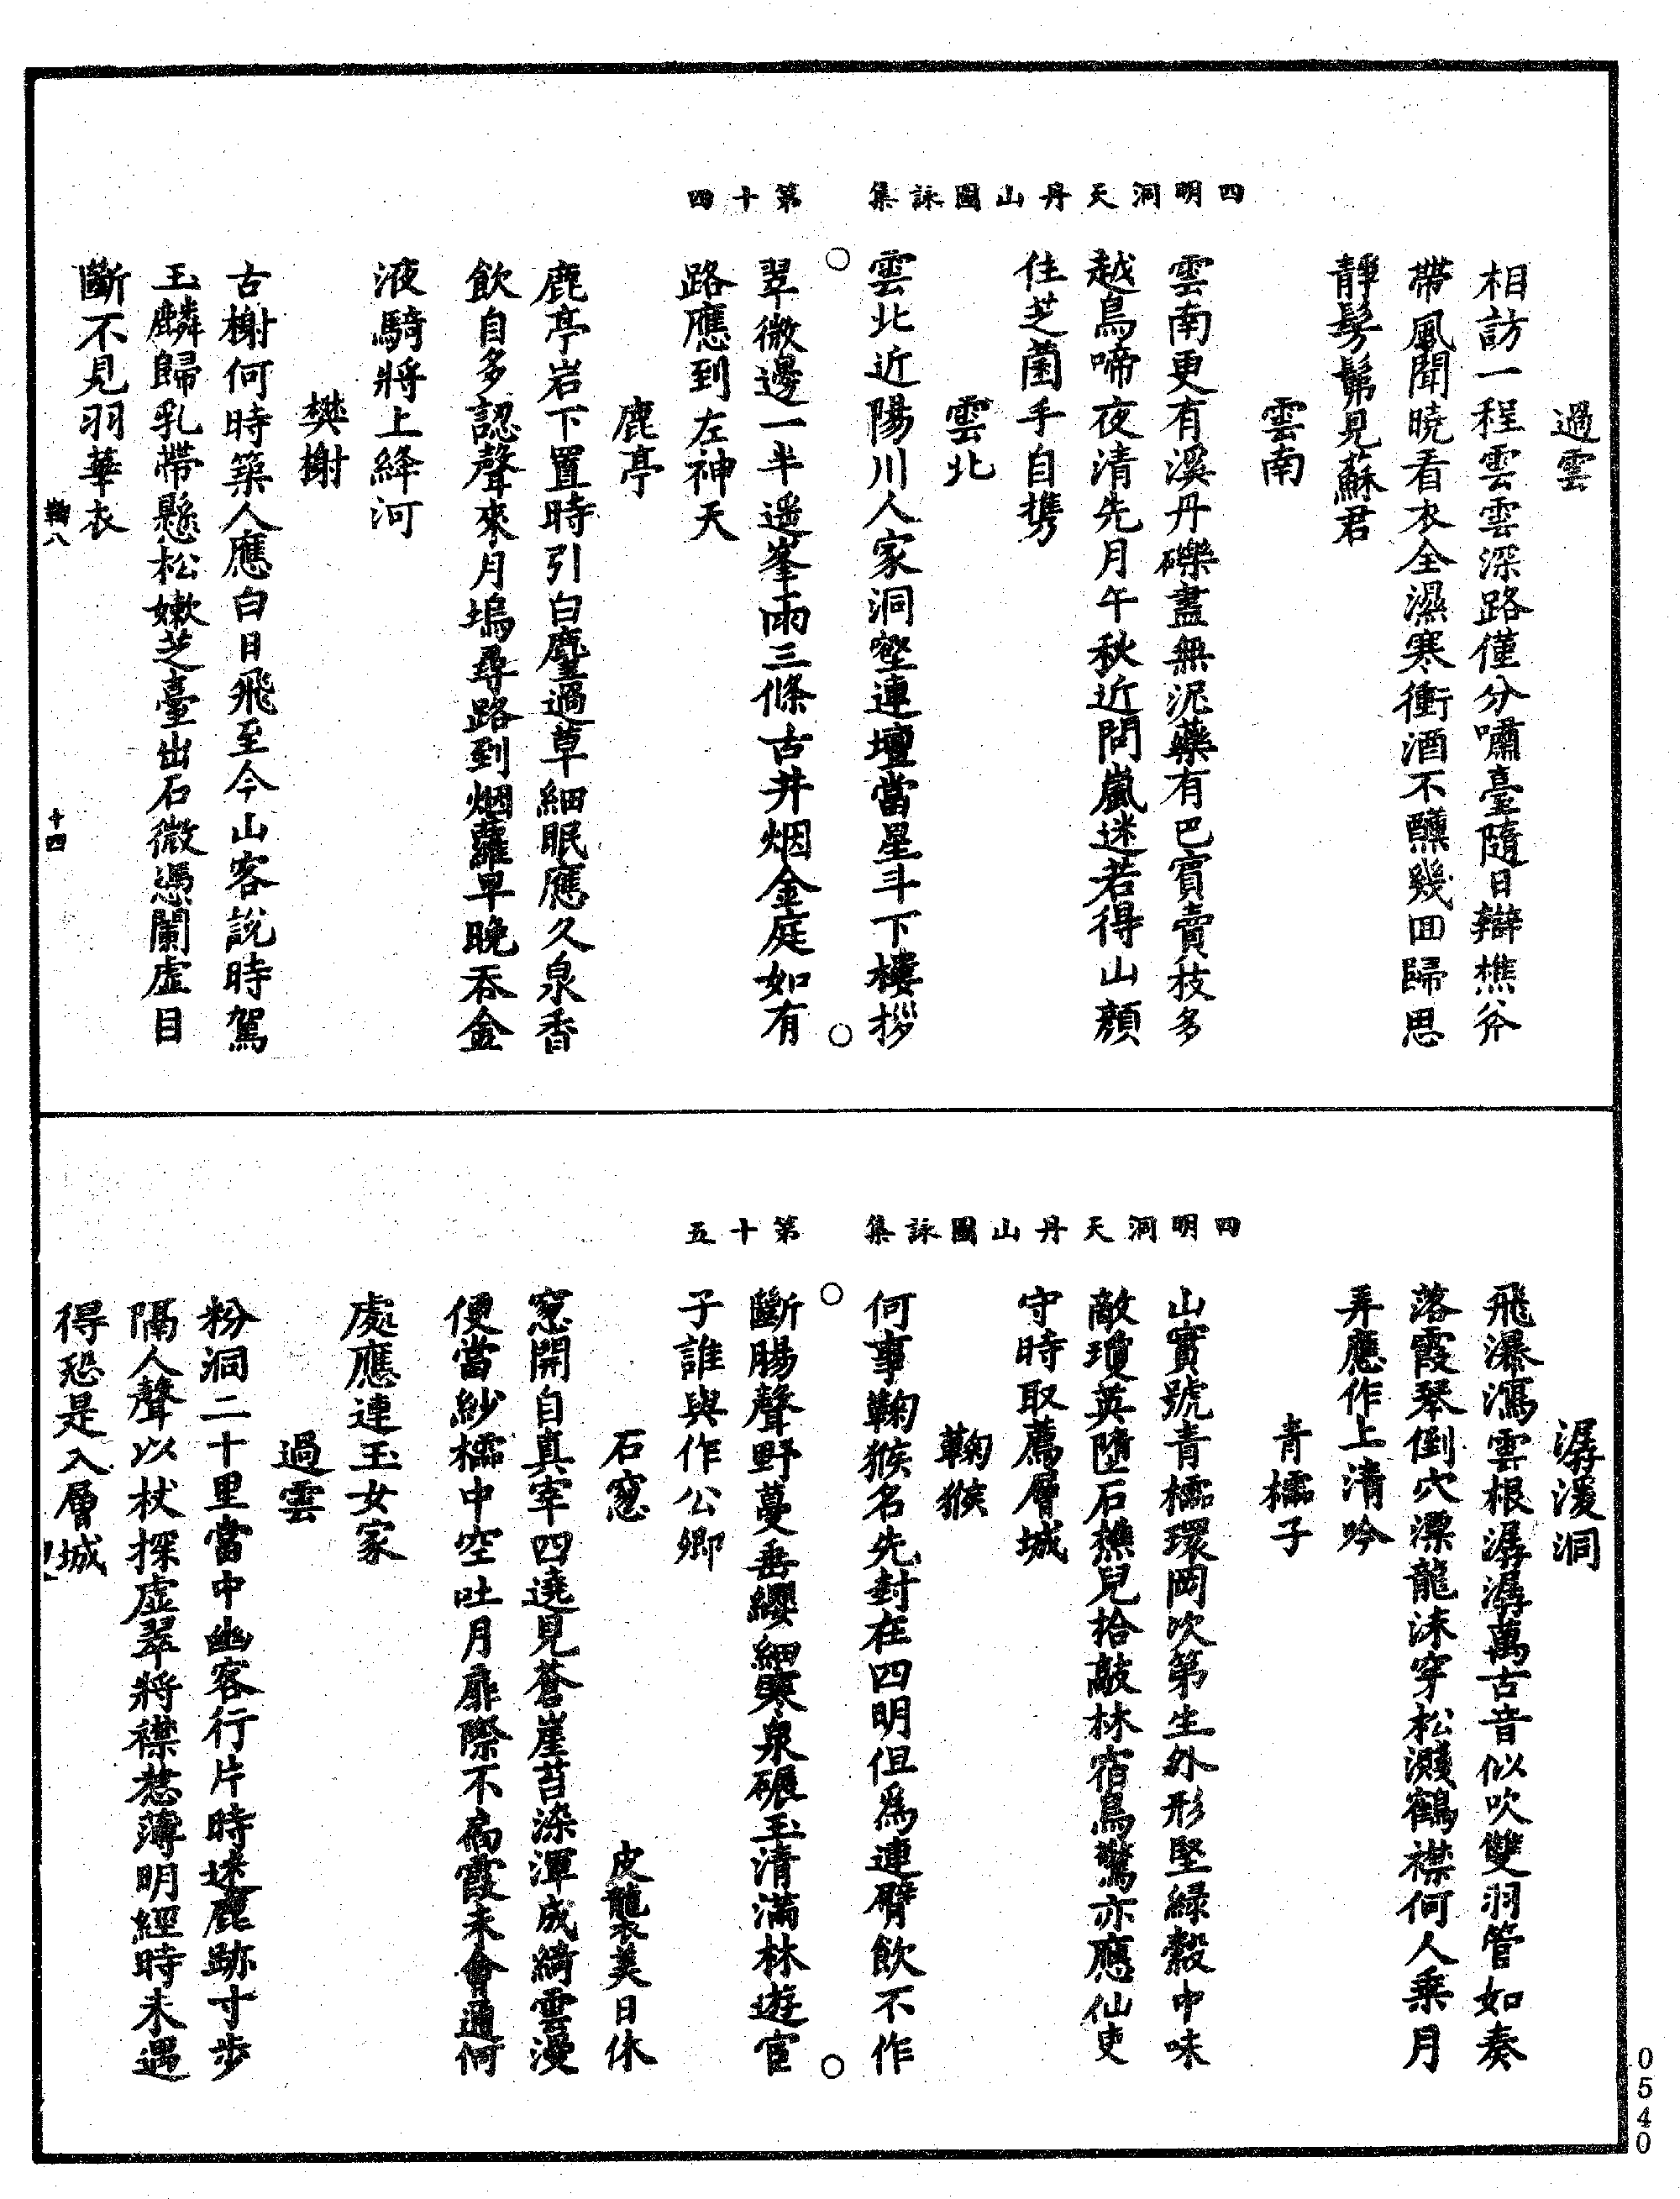 過雲
相訪一程雲雲深路僅分嘯臺隨日辯樵斧
帶風聞曉看衣全濕寒衝酒不醺幾回歸思
靜髣髴見蘇君
雲南
雲南更有溪丹礫盡無泥藥有巴賨賣技多
越鳥啼夜清先月午秋近問嵐迷若得山顏
住芝菌手自携
雲北
雲北近陽川人家洞壑連壇當星斗下樓拶
四明洞天丹山圖詠集 第十四
翠微邊一半遥峯雨三條古井烟金庭如有
路應到左神天
鹿亭
鹿亭岩下置時引白麏過草細眠應久泉香
飲自多認聲來月塢尋路到烟蘿早晚吞金
液騎將上絳河
樊榭
古榭何時築人應白日飛至今山客說時駕
玉麟歸乳蔕懸松嫩芝臺出石微憑闌虛目
斷不見羽華衣
鞠八 十四
潺湲洞
飛瀑瀉雲根潺潺萬古音似吹雙羽管如奏
落霞琴倒穴漂龍沫穿松濺鶴襟何人乘月
弄應作上清吟
青櫺子
山實號青櫺環岡次第生外形堅綠殼中味
敵瓊英墮石樵兒拾敲林宿鳥驚亦應仙吏
守時取薦層城
鞠猴
何事鞠猴名先封在四明但爲連臂飲不作
四明洞天丹山圖詠集 第十五
斷腸聲野蔓垂纓細寒泉碾玉清滿林遊宦
子誰與作公卿
石窻 皮襲美日休
窻開自真宰四遶見蒼崖苔染潭成綺雲漫
便當紗櫺中空吐月扉際不扃霞未會通何
處應連玉女家
過雲
粉洞二十里當中幽客行片時迷鹿跡寸步
隔人聲以杖探虛翠將襟惹薄明經時未遇
得恐是入層城
0540